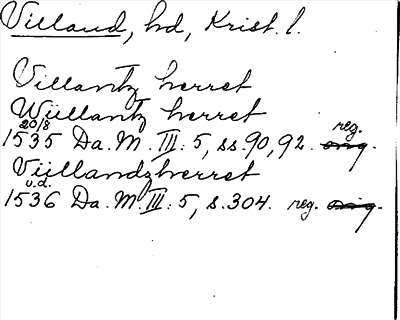 Villand, hd, Krist. l.
Villantz herret
Wüllantz herret
20/8
1535 Da. M. III: 5, ss. 90, 92. reg. orig.
Vüllandzherret
u.d.
1536 Da. M. III: 5, s. 304. reg. orig.